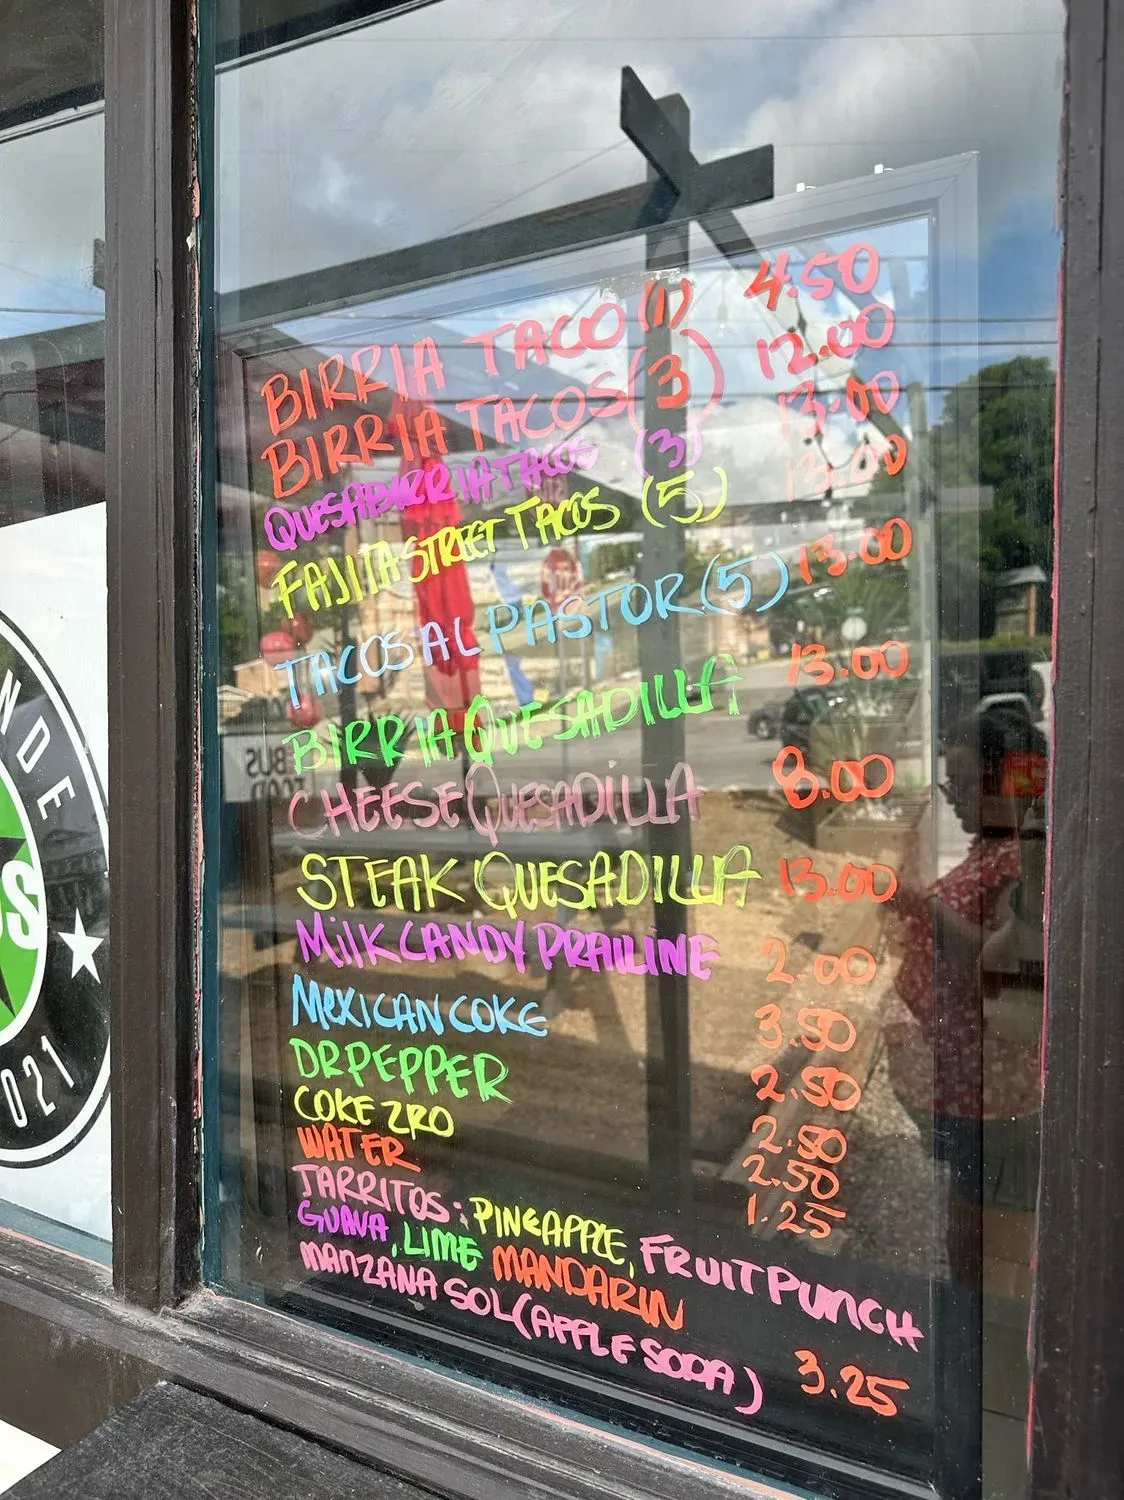 BIRRIA TACO (1) 4.50
BIRRIA TACOS (3) 12.00
QUESABIRRIA TACOS (3) 13.00
FAJITA STREET TACOS (5) 13.00
TACOS AL PASTOR (5) 13.00
BIRRIA QUESADILLA 13.00
CHEESE QUESADILLA 8.00
STEAK QUESADILLA 13.00
MilK CANDY PRAILINE 2.00
MEXICAN COKE 3.50
DR PEPPER 2.50
COKE ZRO 2.50
WATER 2.50
1.25
JARRITOS: PINEAPPLE, FRUIT PUNCH
GUAVA, LIME MANDARIN
MANZANA SOL (APPLE SODA) 3.25
NDE
S
021
BUS